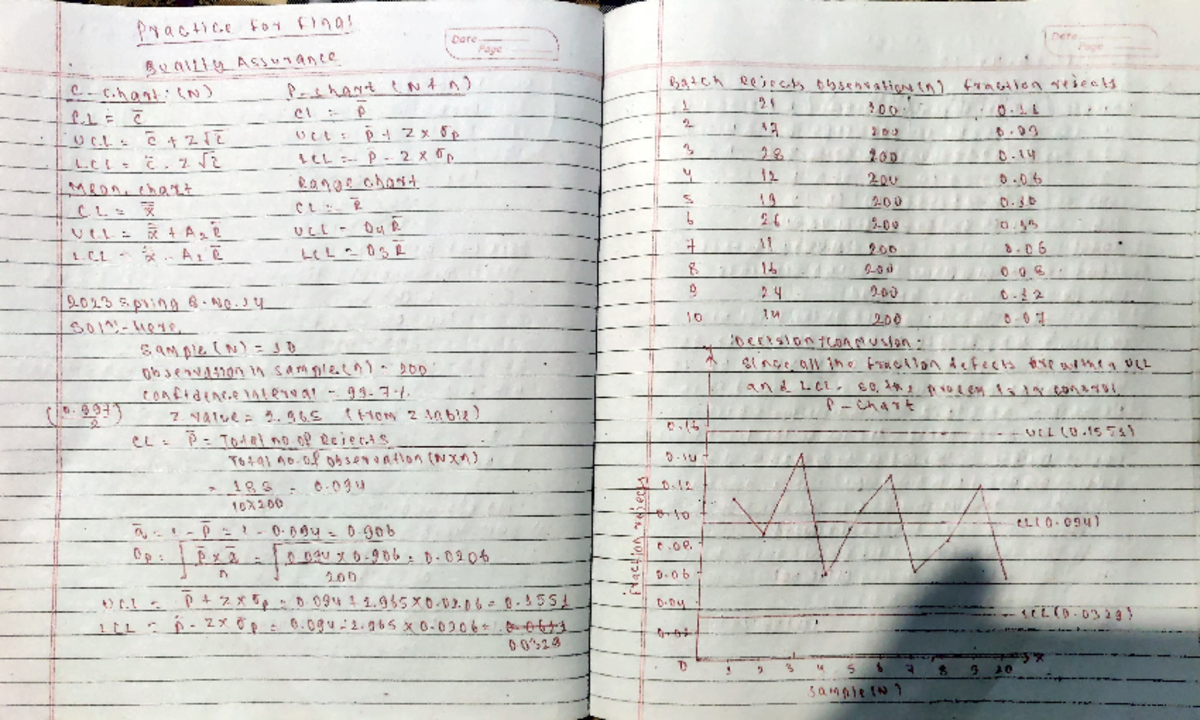 Practice for Final
Quality Assurance
Date
Page
C - chart: (N)
P - chart (N + n)
CL = c̄
CL = p̄
UCL = c̄ + Z√c̄
UCL = p̄ + Z × σp
LCL = c̄ - Z√c̄
LCL = p̄ - Z × σp
Mean chart
Range chart
CL = x̿
CL = R̄
UCL = x̿ + A₂R̄
UCL = D4R̄
LCL = x̿ - A₂R̄
LCL = D3R̄
2023 Spring Q. No. 14
Soln:- Here,
Sample (N) = 10
Observation in sample (n) = 200
Confidence interval = 99.7%
(0.997/2) Z value = 2.965 (from Z table)
CL = p̄ = Total no of Rejects
Total no. of observation (N×n)
= 188 = 0.094
10×200
q̄ = 1 - p̄ = 1 - 0.094 = 0.906
σp = √p̄×q̄ = √0.094×0.906 = 0.0206
n 200
UCL = p̄ + Z×σp = 0.094 + 2.965×0.0206 = 0.1551
LCL = p̄ - Z×σp = 0.094 - 2.965×0.0206 =
0.0329
Date
Page
Batch Rejects Observation (n) fraction rejects
1 21 200 0.11
2 17 200 0.09
3 28 200 0.14
4 12 200 0.06
5 19 200 0.10
6 26 200 0.13
7 11 200 0.06
8 16 200 0.08
9 24 200 0.12
10 14 200 0.07
Decision/Conclusion:
Since all the fraction defects are within UCL
and LCL. So, the process is in control
P - chart
0.16
UCL (0.1551)
0.14
0.12
0.10
CL (0.094)
0.08
0.06
0.04
LCL (0.0329)
0.02
fraction rejects
0 1 2 3 4 5 6 7 8 9 10 x
Sample (N)